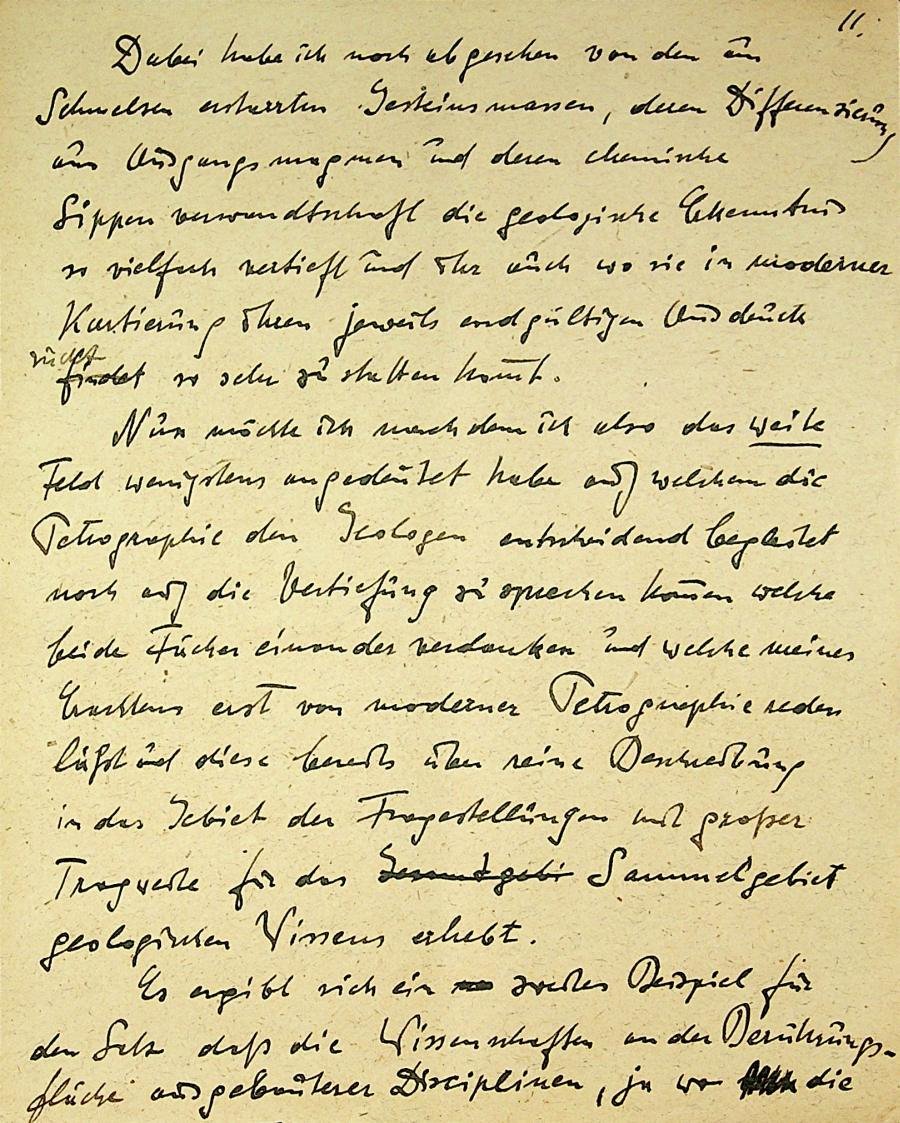 11.
Dabei habe ich noch abgesehen von den aus
Schmelzen erstarrten Gesteinsmassen, deren Differenzierung
aus Ausgangsmagmen und deren chemische
Sippenverwandtschaft die geologische Erkenntnis
so vielfach vertieft und ihr auch wo sie in moderner
Kartierung ihren jeweils endgültigen Ausdruck
sucht
findet so sehr zu statten kom̄t.
Nun möchte ich nachdem ich also das weite
Feld wenigstens angedeutet habe auf welchem die
Petrographie den Geologen entscheidend begleitet
noch auf die Vertiefung zu sprechen kom̄en welche
beide Fächer einander verdanken und welche meines
Erachtens erst von moderner Petrographie reden
läßt und diese bereits über reine Beschreibung
in das Gebiet der Fragestellungen mit großer
Tragweite für das Gesamtgebi Sammelgebiet
geologischen Wissens erhebt.
Es ergibt sich ein zweites Beispiel für
den Satz daß die Wissenschaften an der Berührungs-
fläche ausgebauter Disciplinen, ja wo die